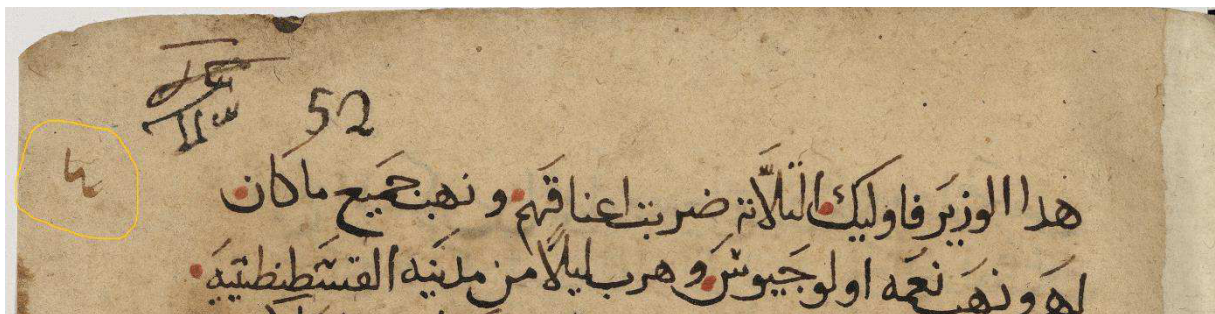 52
هدا الوزير فاوليك التلاتة ضربت اعناقهم ونهبت جميع ما كان
له ونهب نعمه اولوجيوش وهرب ليلا من مدينة القسطنطينية